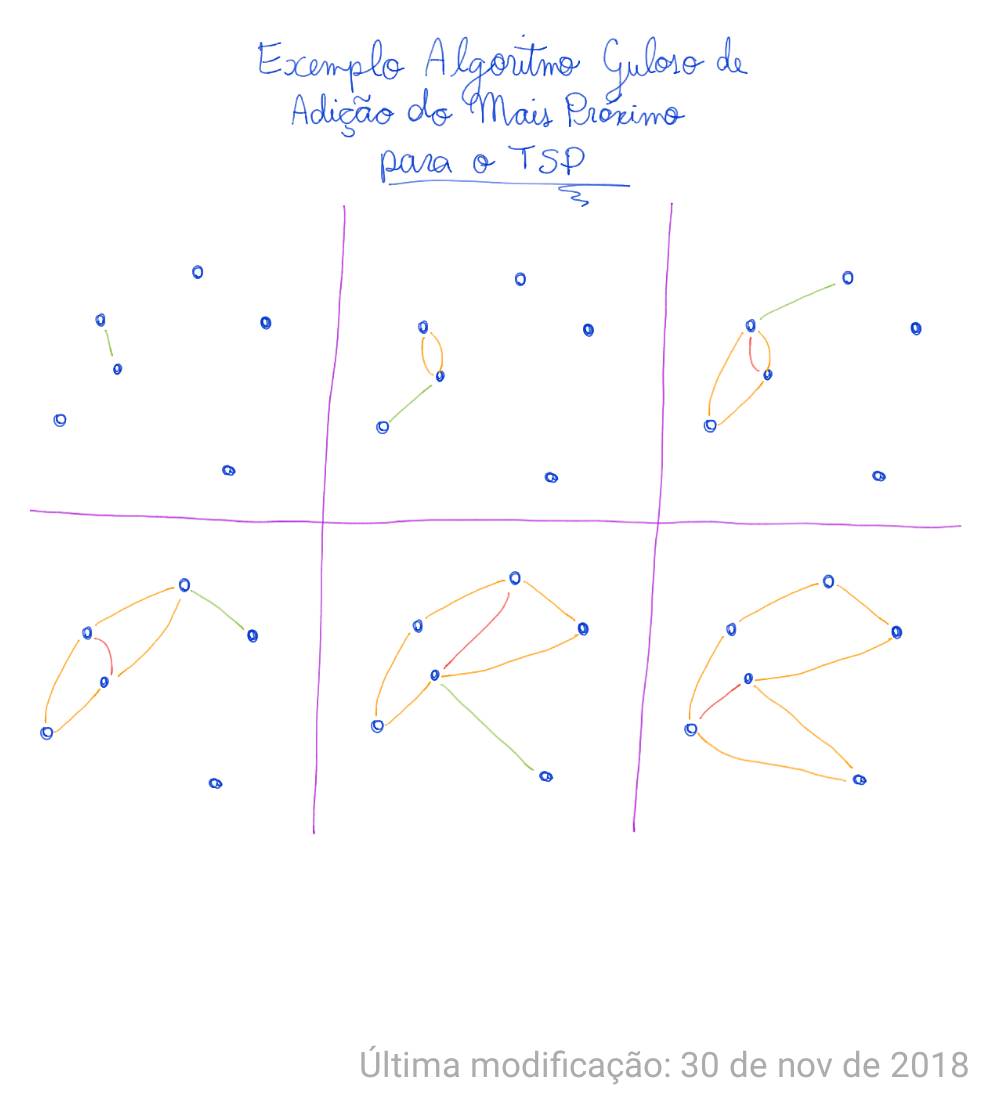 Exemplo Algoritmo Guloso de
Adição do Mais Próximo
para o TSP
Última modificação: 30 de nov de 2018